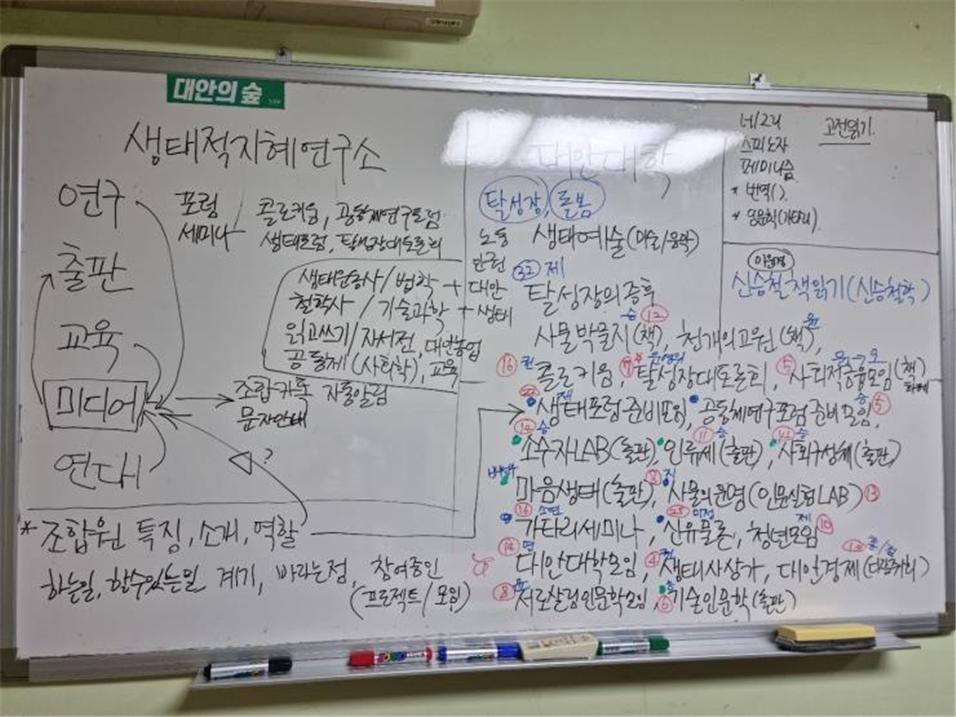 대안의숲
생태적지혜연구소
연구
출판
교육
미디어
연대
포럼
세미나
콜로키움, 공동체연구포럼
생태포럼, 탈성장대토론회
생태운동사/법학 + 대안
철학사/기술과학 + 생태
읽고쓰기/자서전, 대안농업
공동체(사회학), 교육
조합카톡 자동알림
문자안내
?
* 조합원 특징, 소개, 역할
하는일, 할수있는일 계기, 바라는점, 참여중인
(프로젝트/모임)
대안대학
탈성장, 돌봄
노동 생태예술(미술/음악)
32 제
탈성장의 종후
승 12
사물박물지(책), 천개의고원(책),
16 콜로키움, 탈성장대토론회, 5 사회적금융모임(책)
생태포럼준비모임, 공동체연구포럼준비모임, 5
승 11 승 승
소수자LAB(출판), 인류세(출판), 사회구성체(출판)
마음생태(출판), 사물의운명(인문실험LAB) 13
16 25 미정 제
가타리세미나, 신유물론, 청년모임 10
대안대학모임, 4 생태사상가, 대안경제
8 서로살림인문학모임, 6 기술인문학(출판)
고전읽기
스피노자
페미니즘
* 번역( ).
신승철 책읽기(신승철학)